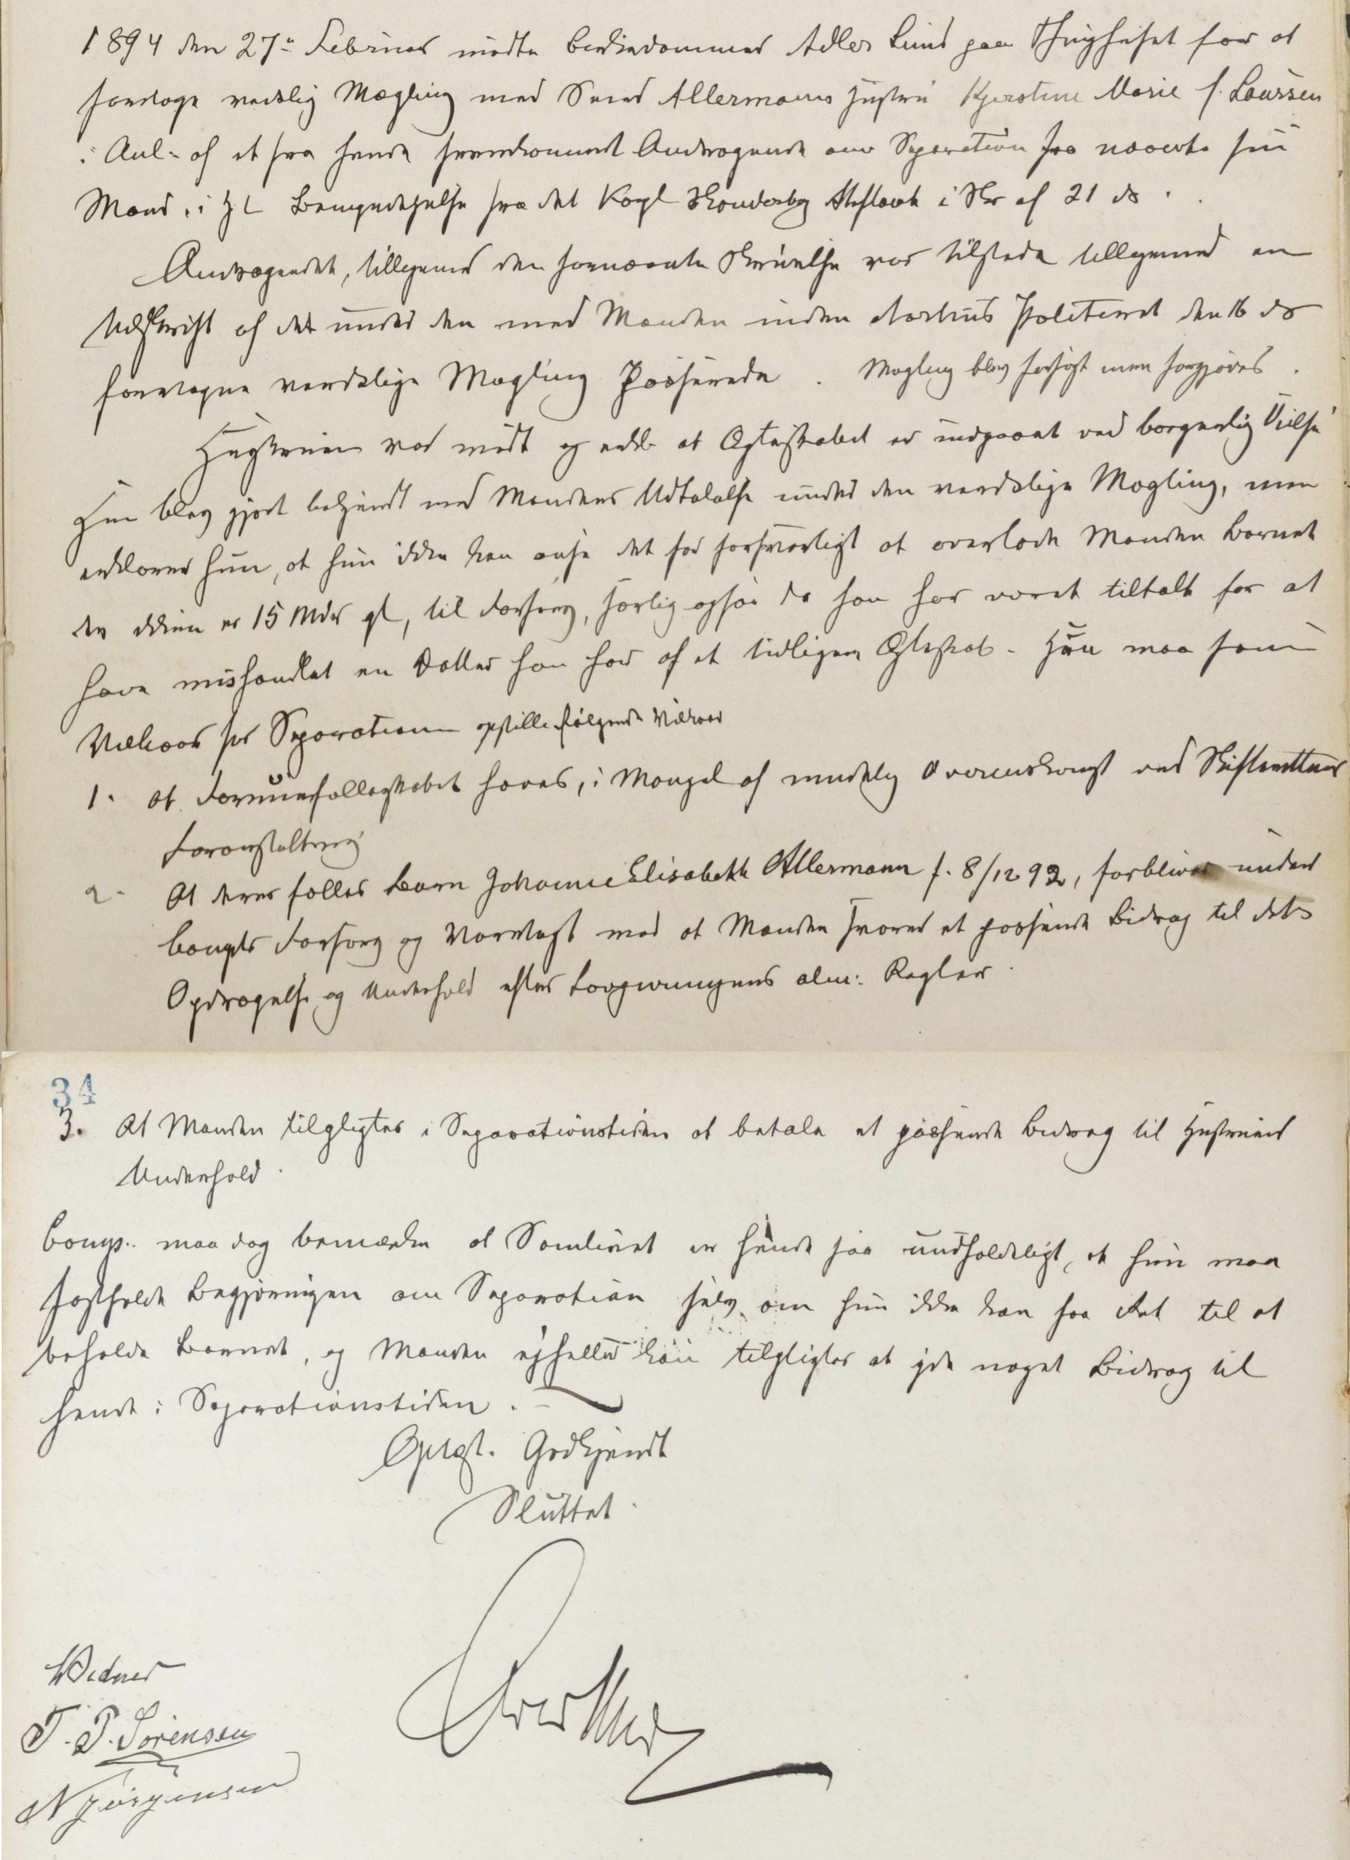 1894 den 27de Februar mødte Birkedommer Adler Lund paa Thinghuset for at
foretage verdslig Mægling med Svend Allermanns Hustru Kjerstine Marie f. Laursen
i Anl. af et fra hende fremkommet Andragende om Separation fra nævnte sin
Mand, i H t Bemyndigelse fra det Kongl Skanderborg Stiftamt i Skr af 21 ds.
Andragendet, tilligemed den fornævnte Skrivelse var tilstede tilligemed en
Udskrift af det under den med Manden inden Aarhus Politiret den 16 ds
foretagne verdslige Mægling Passerede. Mægling blev forsøgt men forgjæves.
Hustruen var mødt og erkl. at Ægteskabet er indgaaet ved borgerlig Vielse
Hun blev gjort bekjendt med Mandens Udtalelse under den verdslige Mægling, men
erklærer hun, at hun ikke kan anse det for forsvarligt at overlade Manden Barnet
der ikkun er 15 Mdr gl, til Forsørg, særlig ogsaa da han har været tiltalt for at
have mishandlet en Datter han har af et tidligere Ægteskab. Hun maa som
Vilkaar for Separationen opstille følgende Vilkaar
1. at Formuefællesskabet hæves, i Mangel af mindelig Overenskomst ved Skifterettens
Foranstaltning
2. At deres fælles Barn Johanne Elisabeth Allermann f. 8/12 92, forbliver under
Comp's Forsørg og Varetægt mod at Manden svarer et passende Bidrag til dets
Opdragelse og Underhold efter Lovgivningens alm: Regler.
34
3. At Manden tilpligtes i Separationstiden at betale et passende Bidrag til Hustruens
Underhold.
Comp. maa dog bemærke at Samlivet er hende saa uudholdeligt, at hun maa
fastholde Begjæringen om Separation selv om hun ikke kan faa Ret til at
beholde Barnet, og Manden ejheller kan tilpligtes at yde noget Bidrag til
hende i Separationstiden. –
Oplæst. Godkjendt
Sluttet.
Adler Lund
Vidner
T. P. Sørensen
N Jørgensen